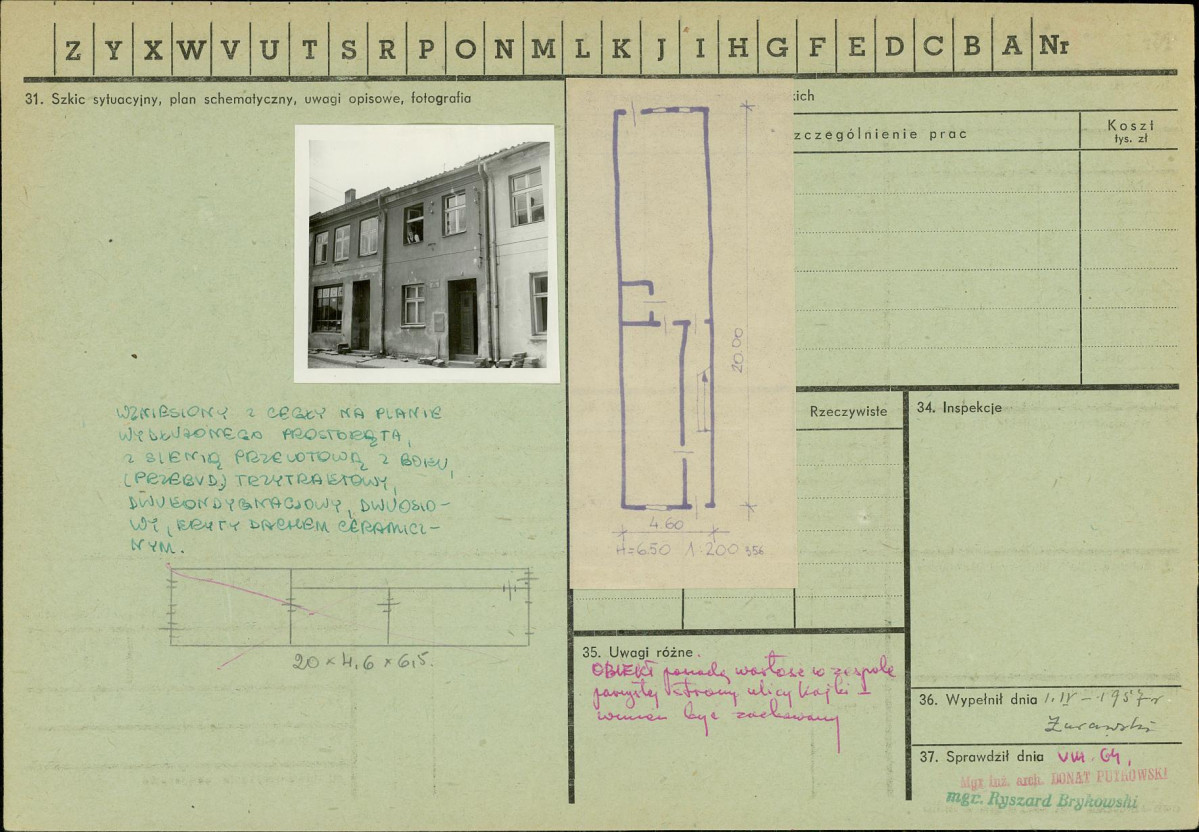 Z Y X W V U T S R P O N M L K J I H G F E D C B A Nr
31. Szkic sytuacyjny, plan schematyczny, uwagi opisowe, fotografia
kich
zczególnienie prac
Koszt
tys. zł
WZNIESIONY Z CEGŁY NA PLANIE
WYDŁUŻONEGO PROSTOKĄTA,
Z SIENIĄ PRZELOTOWĄ Z BOKU,
(PRZEBUD.) TRZYTRAKTOWY,
DWUKONDYGNACJOWY, DWUOSIO-
WY, KRYTY DACHEM CERAMICZ-
NYM.
20 × 4,6 × 6,5.
20.00
4.60
H=650 1:200 356
Rzeczywiste
34. Inspekcje
35. Uwagi różne.
OBIEKT posiada wartość w zespole
parzystej strony ulicy Kajki I
winien być zachowany
36. Wypełnił dnia 1. IV - 1957 r
Żurawski
37. Sprawdził dnia VIII. 64,
Mgr inż. arch. DONAT PUTKOWSKI
mgr. Ryszard Brykowski